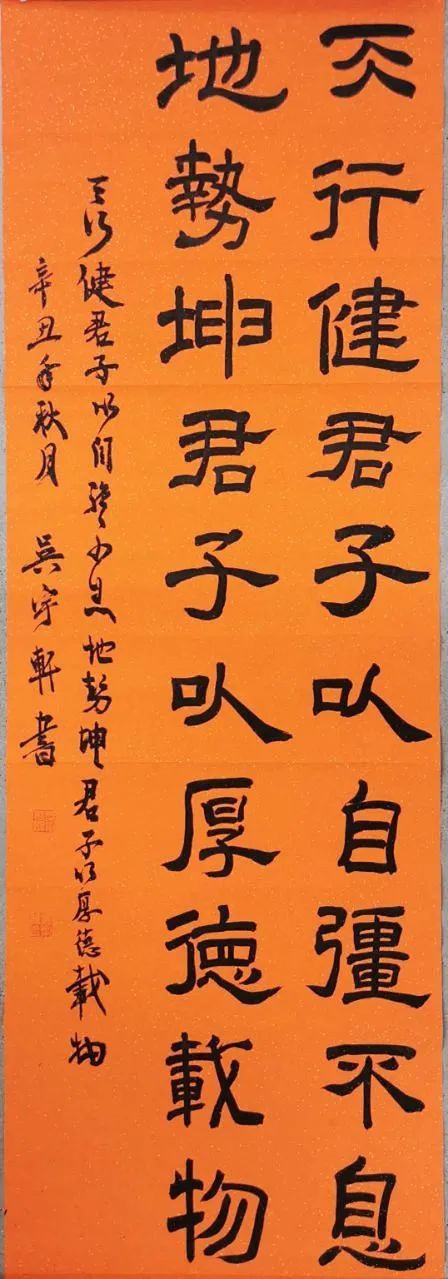 天行健君子以自彊不息
地勢坤君子以厚德載物
天行健君子以自強不息地勢坤君子以厚德載物
辛丑年秋月 吳宇軒書